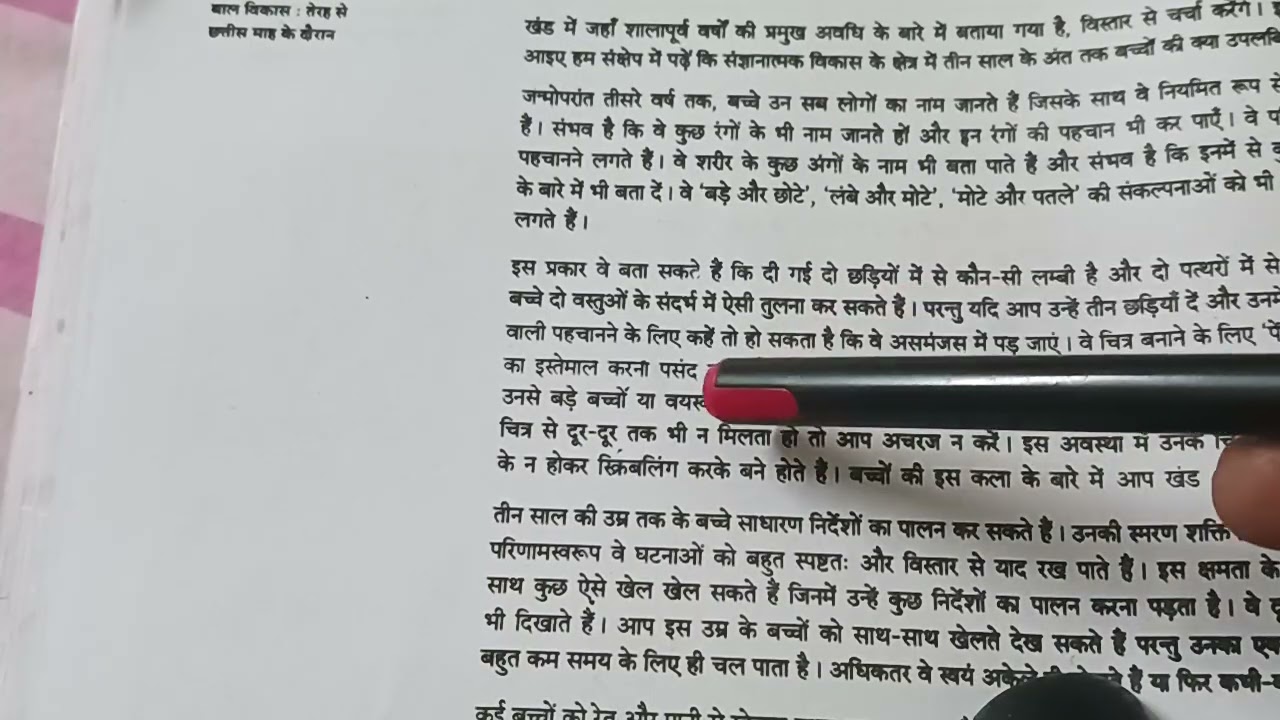 बाल विकास : तेरह से
छत्तीस माह के दौरान
खंड में जहाँ शालापूर्व वर्षों की प्रमुख अवधि के बारे में बताया गया है, विस्तार से चर्चा करेंगे।
आइए हम संक्षेप में पढ़ें कि संज्ञानात्मक विकास के क्षेत्र में तीन साल के अंत तक बच्चों की क्या
जन्मोपरांत तीसरे वर्ष तक, बच्चे उन सब लोगों का नाम जानते हैं जिसके साथ वे नियमित रूप से
हैं। संभव है कि वे कुछ रंगों के भी नाम जानते हों और इन रंगों की पहचान भी कर पाएँ। वे
पहचानने लगते हैं। वे शरीर के कुछ अंगों के नाम भी बता पाते हैं और संभव है कि इनमें से
के बारे में भी बता दें। वे 'बड़े और छोटे', 'लंबे और मोटे', 'मोटे और पतले' की संकल्पनाओं को भी
लगते हैं।
इस प्रकार वे बता सकते हैं कि दी गई दो छड़ियों में से कौन-सी लम्बी है और दो पत्थरों में से
बच्चे दो वस्तुओं के संदर्भ में ऐसी तुलना कर सकते हैं। परन्तु यदि आप उन्हें तीन छड़ियाँ दें और
वाली पहचानने के लिए कहें तो हो सकता है कि वे असमंजस में पड़ जाएं। वे चित्र बनाने के लिए
का इस्तेमाल करना पसंद
उनसे बड़े बच्चों या
चित्र से दूर-दूर तक भी न मिलता हो तो आप अचरज न करें। इस अवस्था में उनके
के न होकर स्क्रिबलिंग करके बने होते हैं। बच्चों की इस कला के बारे में आप खंड
तीन साल की उम्र तक के बच्चे साधारण निर्देशों का पालन कर सकते हैं। उनकी स्मरण शक्ति
परिणामस्वरूप वे घटनाओं को बहुत स्पष्टतः और विस्तार से याद रख पाते हैं। इस क्षमता के
साथ कुछ ऐसे खेल खेल सकते हैं जिनमें उन्हें कुछ निर्देशों का पालन करना पड़ता है। वे
भी दिखाते हैं। आप इस उम्र के बच्चों को साथ-साथ खेलते देख सकते हैं परन्तु उनका
बहुत कम समय के लिए ही चल पाता है। अधिकतर वे स्वयं अकेले हैं या फिर
कई बच्चों को रेत और पानी से